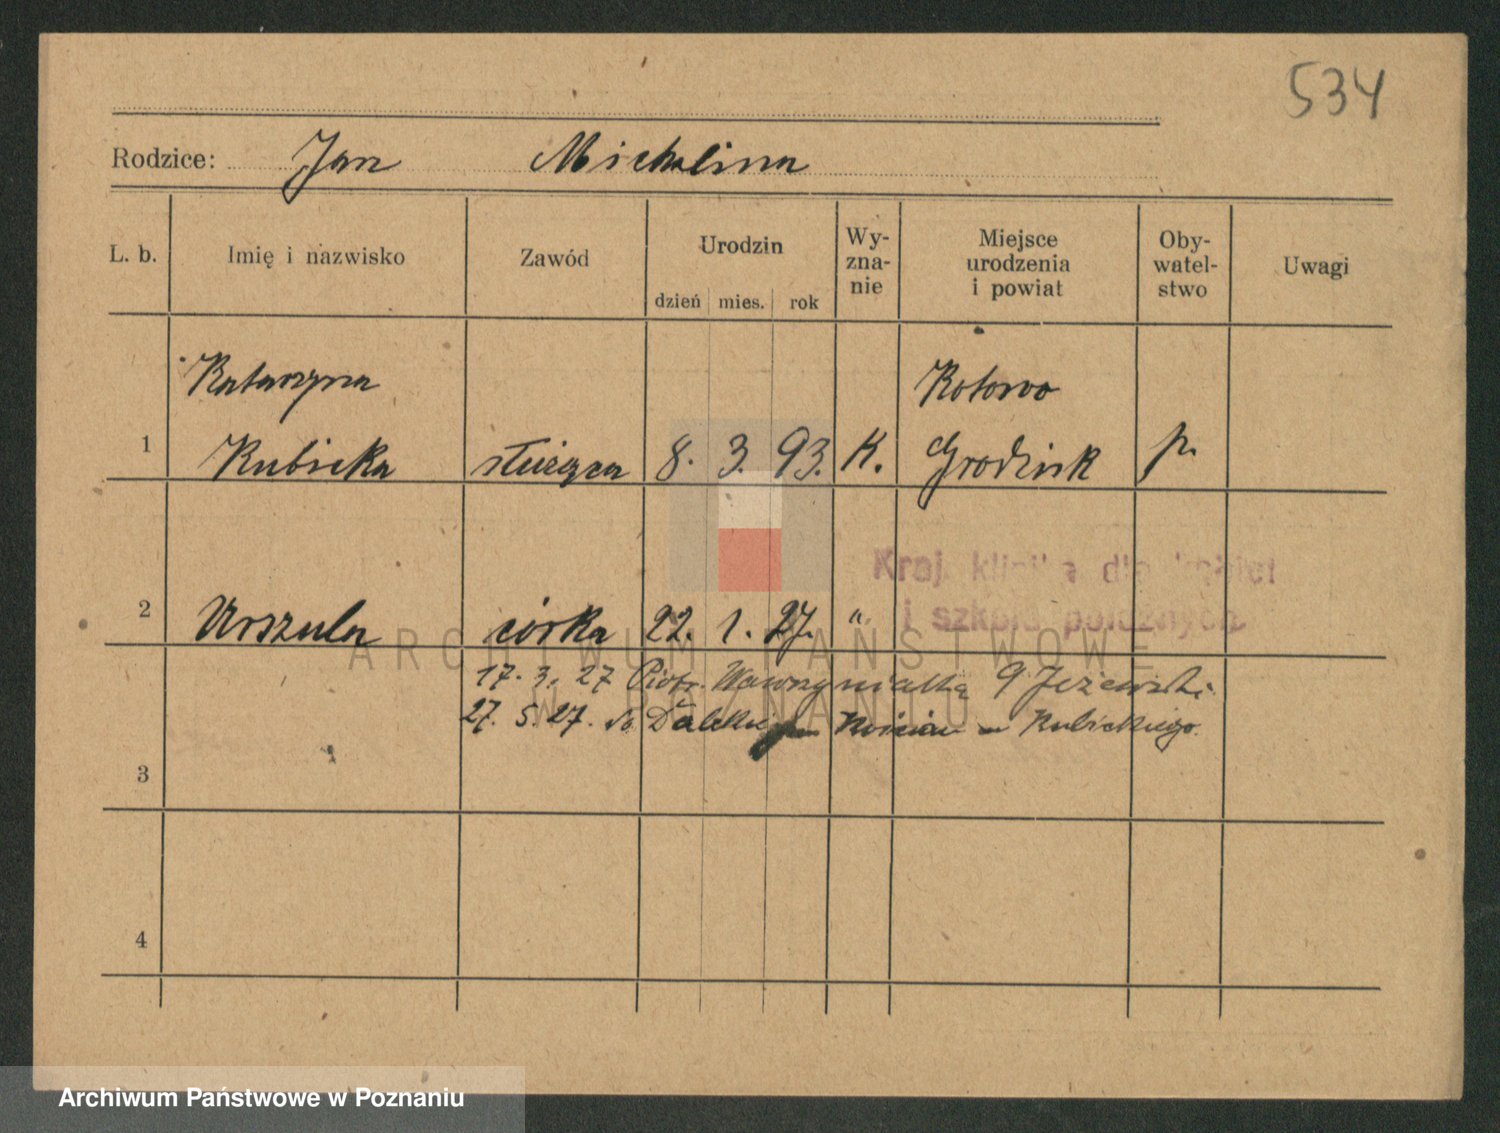 534
Rodzice: Jan Michalina
L. b. Imię i nazwisko Zawód Urodzin dzień mies. rok Wy-zna-nie Miejsce urodzenia i powiat Oby-watel-stwo Uwagi
Katarzyna Kotowo
1 Kubicka służąca 8. 3. 93. K. Grodzisk p.
Kraj. klinika dla kobiet
i szkoła położnych
2 Urszula córka 22. 1. 27. "
ARCHIWUM PAŃSTWOWE
17. 3. 27 Piotr. Wawrzyniaka 9 Jeżewski
W POZNANIU
27. 5. 27. do Kościan Kubickiego.
3
4
Archiwum Państwowe w Poznaniu